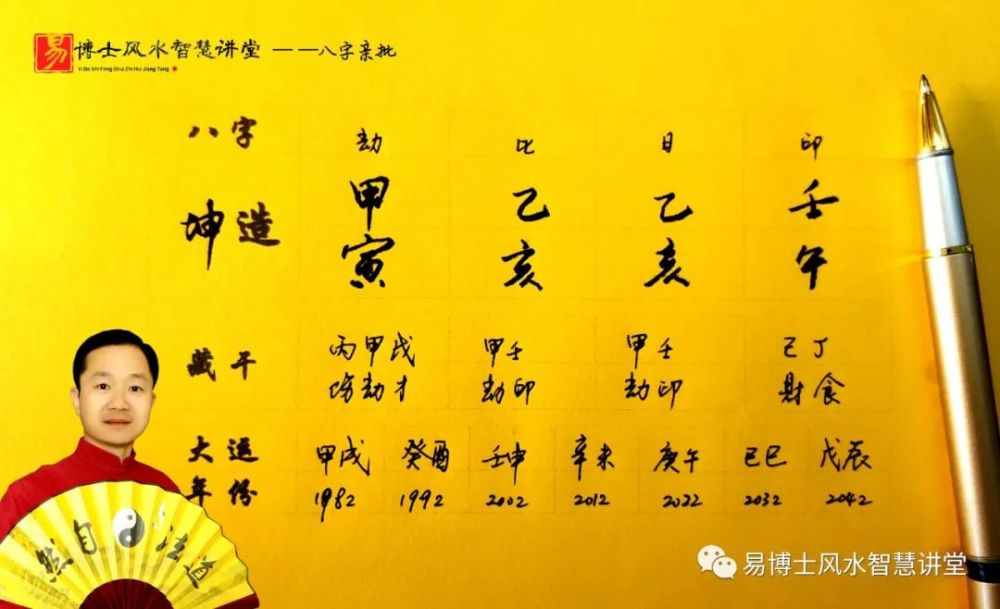 易 博士风水智慧讲堂 ——八字亲批
Yi Bo Shi Feng Shui Zhi Hui Jiang Tang
八字 劫 比 日 印
坤造 甲 乙 乙 壬
寅 亥 亥 午
藏干 丙甲戊 甲壬 甲壬 己丁
伤劫才 劫印 劫印 财食
大运 甲戌 癸酉 壬申 辛未 庚午 己巳 戊辰
年份 1982 1992 2002 2012 2022 2032 2042
然自法道
易博士风水智慧讲堂